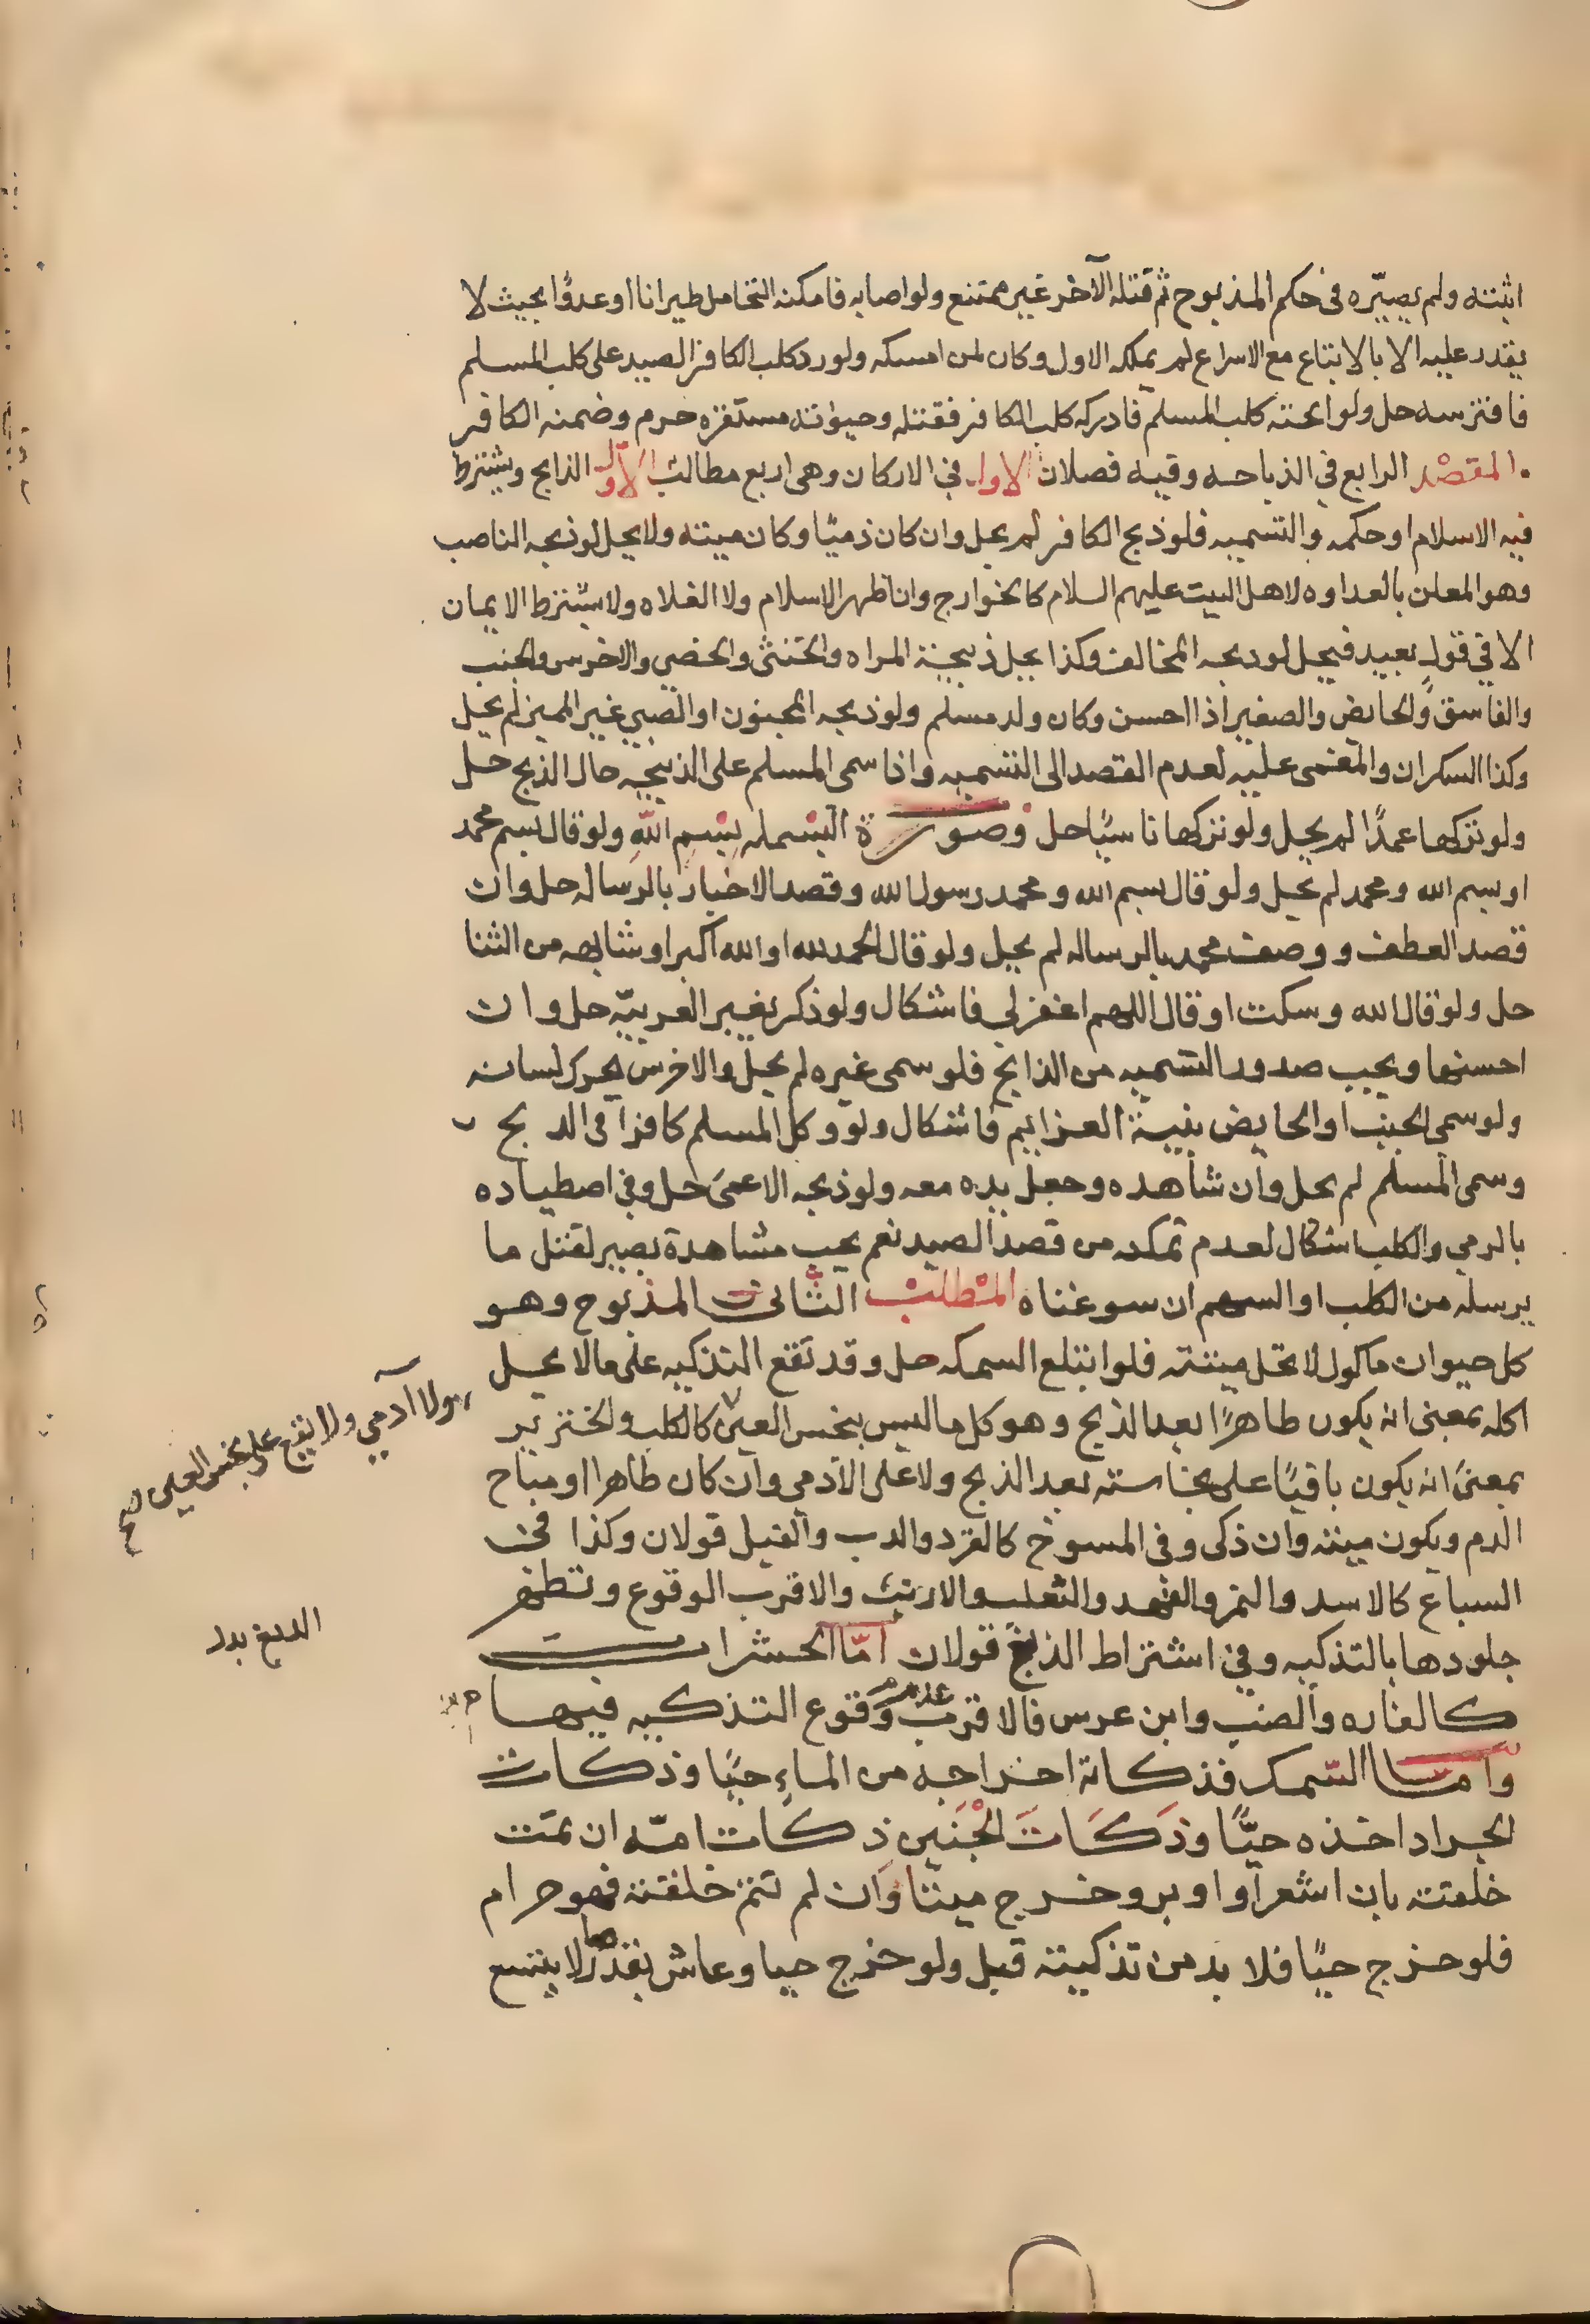 اثبته ولم يصيّره في حكم المذبوح ثم قتله الآخر غير ممتنع ولو اصابه فامكنه التحامل طيرانا او عدوًا بحيث لا
يقدر عليه الا بالاتباع مع الاسراع لم يملكه الاول وكان لمن امسكه ولو رد كلب الكافر الصيد على كلب المسلم
فافترسه حل ولو اثخنه كلب المسلم فادركه كلب الكافر فقتله وحيوته مستقره حرم وضمنه الكافر
المقصد الرابع في الذباحه وفيه فصلان الاول في الاركان وهي اربع مطالب الأول الذابح ويشترط
فيه الاسلام او حكمه والتسميه فلو ذبح الكافر لم يحل وان كان ذميّا وكان ميتته ولا يحل لو ذبحه الناصب
وهو المعلن بالعداوه لاهل البيت عليهم السلام كالخوارج وان اظهر الاسلام ولا الغلاه ولا يشترط الايمان
الا في قولٍ بعيد فيحل لو ذبحه المخالف وكذا يحل ذبيحة المراه والخنثى والخصي والاخرس والجنب
والفاسق والحايض والصغير اذا احسن وكان ولد مسلم ولو ذبحه المجنون او الصبي غير المميز لم يحل
وكذا السكران والمغمى عليه لعدم القصد الى التسميه واذا سمى المسلم على الذبيحه حال الذبح حل
ولو تركها عمدًا لم يحل ولو تركها ناسيًا حل وصورة البسمله بسم الله ولو قال بسم محمد
او بسم الله ومحمد لم يحل ولو قال بسم الله ومحمد رسول الله وقصد الاخبار بالرساله حل وان
قصد العطف ووصف محمد بالرساله لم يحل ولو قال الحمد لله او الله اكبر او شابهه من الثنا
حل ولو قال الله وسكت او قال اللهم اغفر لي فاشكال ولو ذكر بغير العربيّه حل وان
احسنها ويجب صدور التسميه من الذابح فلو سمى غيره لم يحل والاخرس يحرك لسانه
ولو سمى الجنب او الحايض بنية العزايم فاشكال ولو وكل المسلم كافرا في الذبح
وسمى المسلم لم يحل وان شاهده وجعل يده معه ولو ذبحه الاعمى حل وفي اصطياده
بالرمي والكلب اشكال لعدم تمكنه من قصد الصيد نعم يجب مشاهدة بصير لقتل ما
يرسله من الكلب او السهم ان سوغناه المطلب الثاني المذبوح وهو
كل حيوان ماكول لا تحل ميتته فلو ابتلع السمكه حل وقد تقع التذكيه على ما لا يحل
اكله بمعنى انه يكون طاهرًا بعد الذبح وهو كل ما ليس بنجس العين كالكلب والخنزير
ولا آدمي ولا تقع على نجس العين صح
بمعنى انه يكون باقيًا على نجاسته بعد الذبح ولا على الآدمي وان كان طاهرا او مباح
الدم ويكون ميتته وان ذكى وفي المسوخ كالقرد والدب والفيل قولان وكذا في
السباع كالاسد والنمر والفهد والثعلب والارنب والاقرب الوقوع وتطهر
جلودها بالتذكيه وفي اشتراط الدبغ قولان امّا الحشرات
الدبغ بدل
كالفاره والضب وابن عرس فالاقرب عدم وقوع التذكيه فيها
واما السّمك فذكاته اخراجه من الماءِ حيًا وذكات
الجراد اخذه حيًّا وذَكَاتَ الجْنَين ذكات امّه ان تمّت
خلقته بان اشعر او اوبر وخرج ميتًا وَان لم تتم خلقته فهو حرام
فلو خرج حيًا فلا بد من تذكيته قيل ولو خرج حيا وعاش بقدر ما لا يتسع